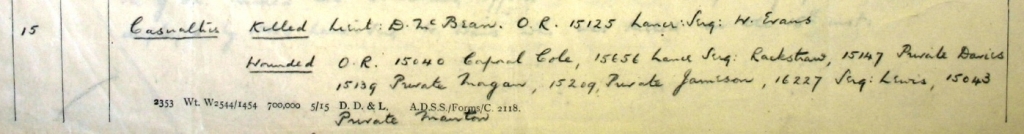 15 Casualties Killed Lieut: D. McBean. O.R. 15125 Lance: Serg: W. Evans
Wounded O.R. 15040 Corporal Cole, 15656 Lance Serg: Rackstraw, 15147 Private Davies
15139 Private Morgan, 15209, Private Jamison, 16227 Serg: Lewis, 15043
2353 Wt. W2544/1454 700,000 5/15 D. D. & L. A.D.S.S./Forms/C. 2118.
Private Manton